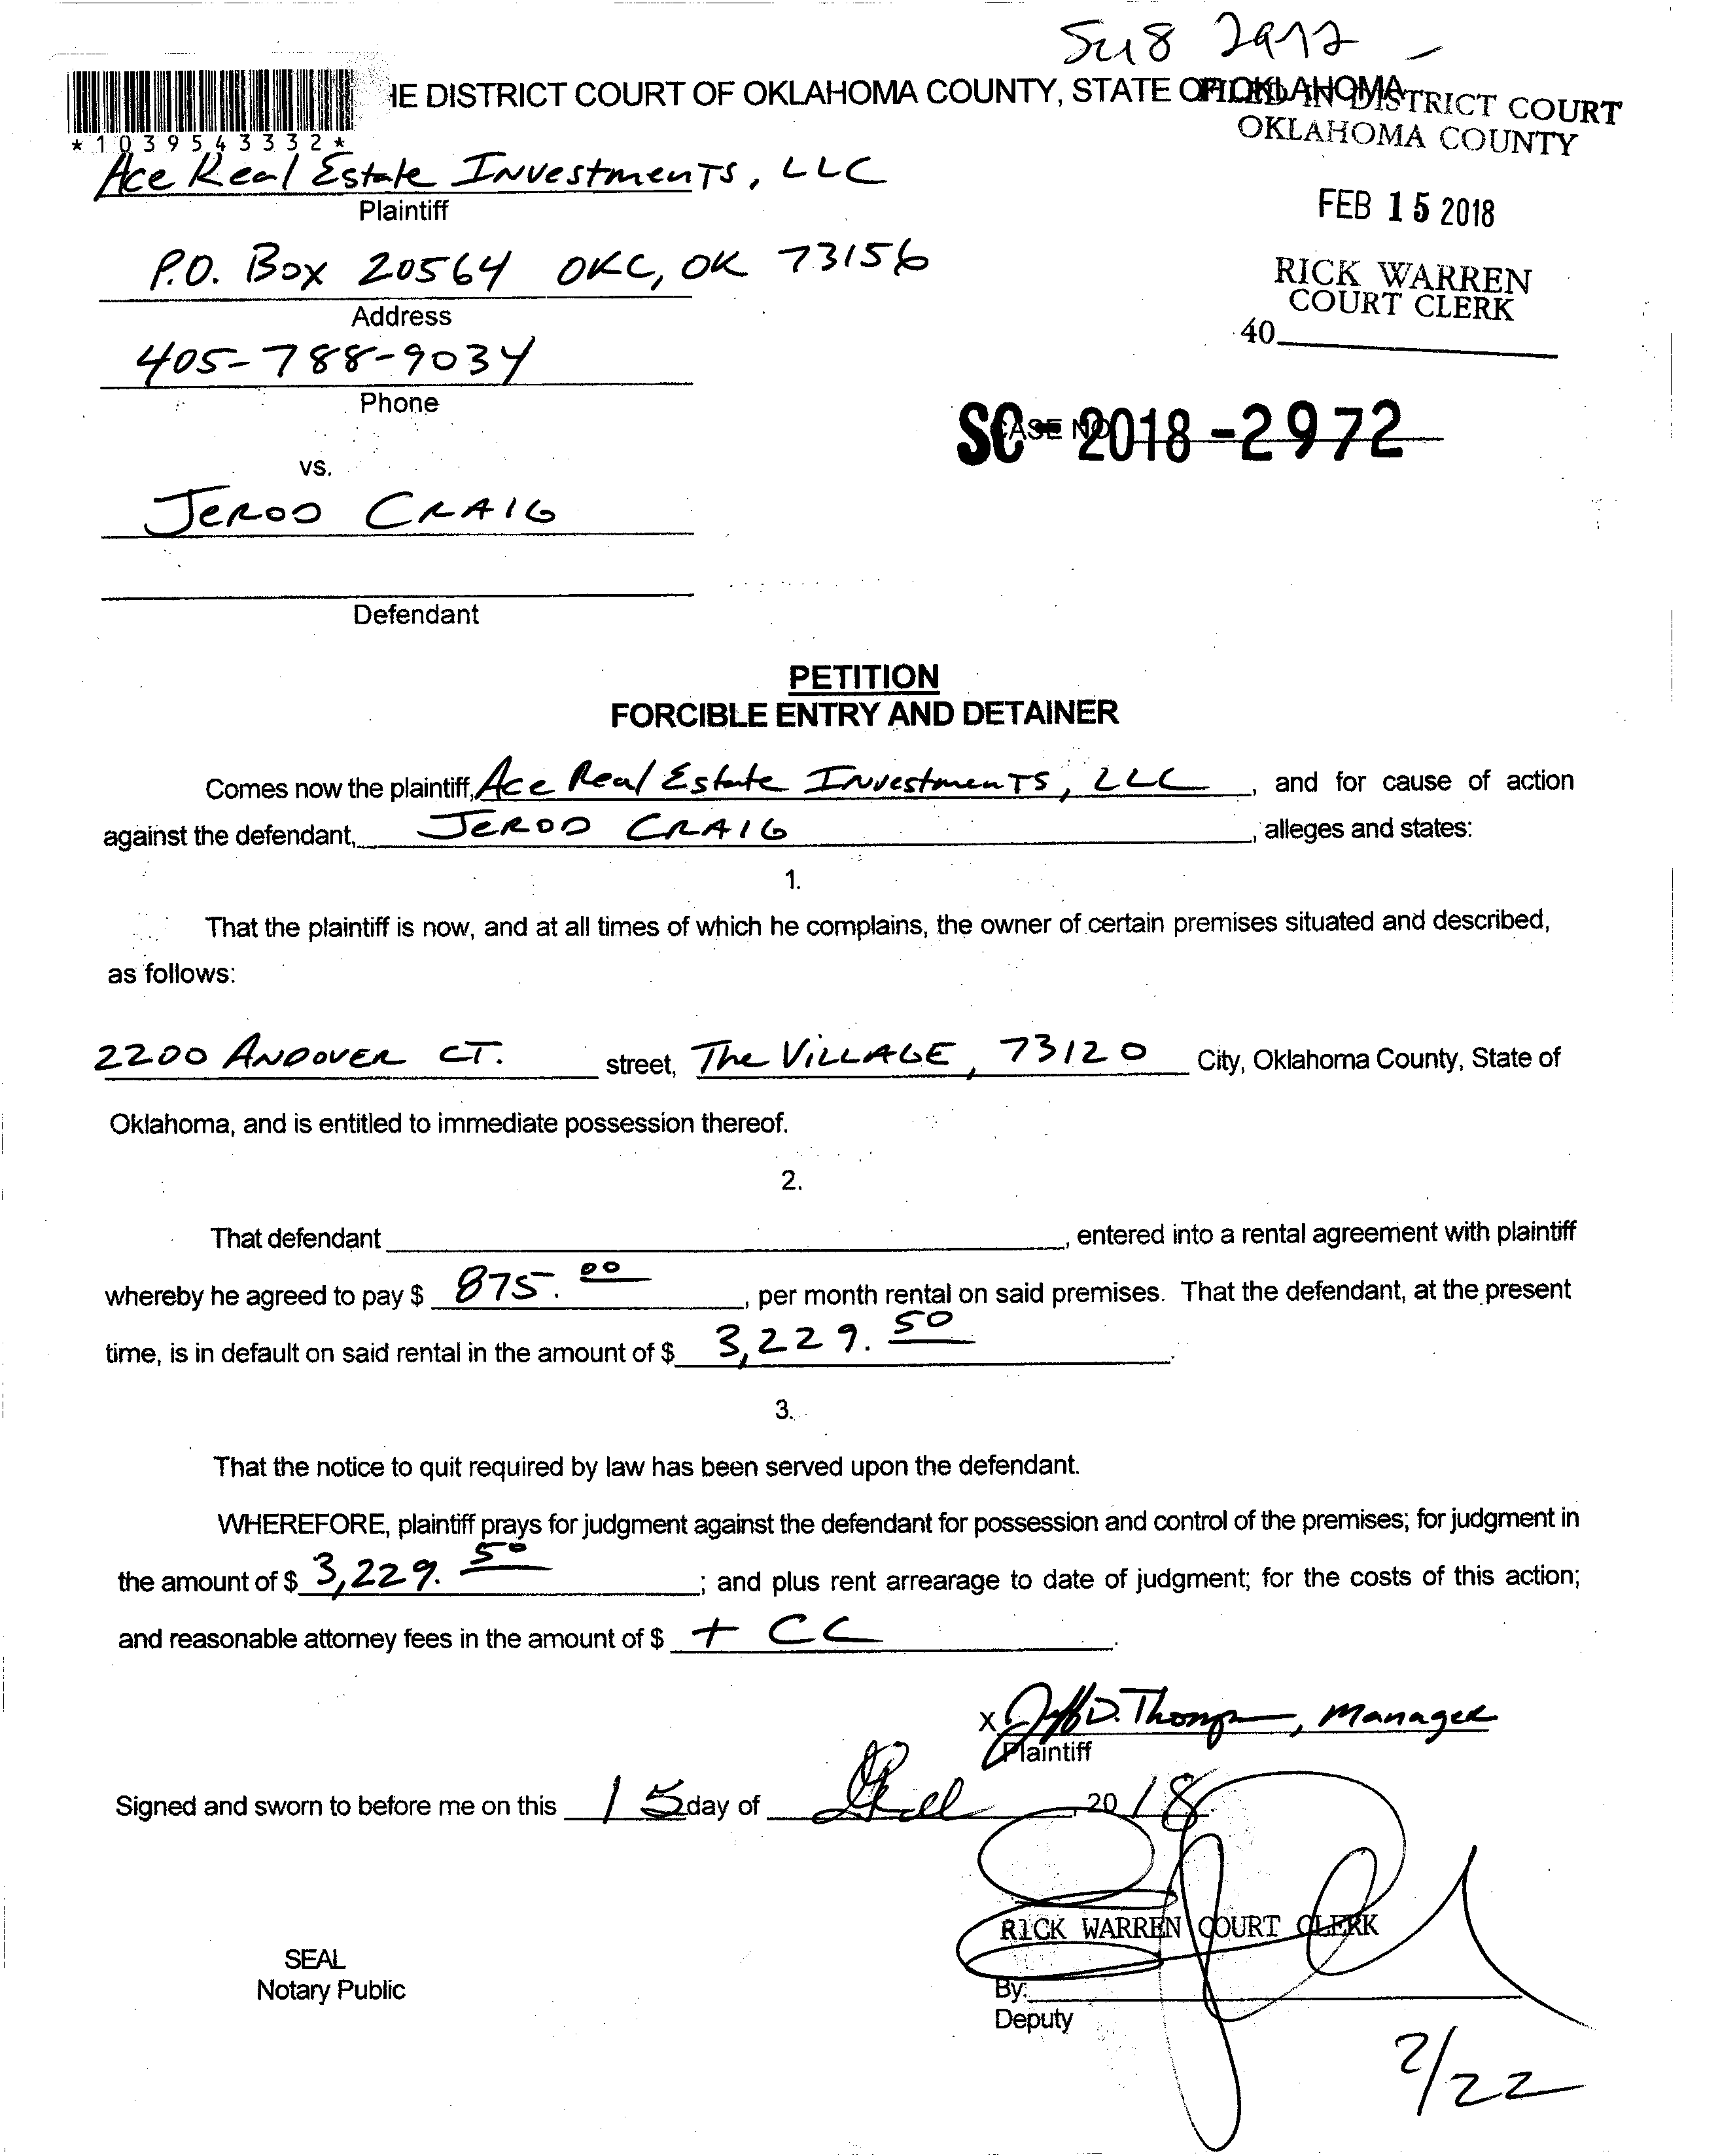 IE DISTRICT COURT OF OKLAHOMA COUNTY, STATE OF OKLAHOMA
FILED IN DISTRICT COURT
OKLAHOMA COUNTY
*1039543332*
Ace Real Estate Investments, LLC
Plaintiff
FEB 15 2018
P.O. Box 20564 OKC, OK 73156
Address
RICK WARREN
COURT CLERK
40
405-788-9034
Phone
CASE NO.
SC-2018-2972
vs.
JEROD CRAIG
Defendant
PETITION
FORCIBLE ENTRY AND DETAINER
Comes now the plaintiff, Ace Real Estate Investments, LLC, and for cause of action
against the defendant, JEROD CRAIG, alleges and states:
1.
That the plaintiff is now, and at all times of which he complains, the owner of certain premises situated and described,
as follows:
2200 ANDOVER CT. street, The VILLAGE, 73120 City, Oklahoma County, State of
Oklahoma, and is entitled to immediate possession thereof.
2.
That defendant , entered into a rental agreement with plaintiff
whereby he agreed to pay $ 875.00, per month rental on said premises. That the defendant, at the present
time, is in default on said rental in the amount of $ 3,229.50.
3.
That the notice to quit required by law has been served upon the defendant.
WHEREFORE, plaintiff prays for judgment against the defendant for possession and control of the premises; for judgment in
the amount of $ 3,229.50; and plus rent arrearage to date of judgment; for the costs of this action;
and reasonable attorney fees in the amount of $ + CC.
X Jeff D. Thompson, Manager
Plaintiff
Signed and sworn to before me on this 15 day of , 2018
RICK WARREN COURT CLERK
SEAL
Notary Public
By:
Deputy
2/22